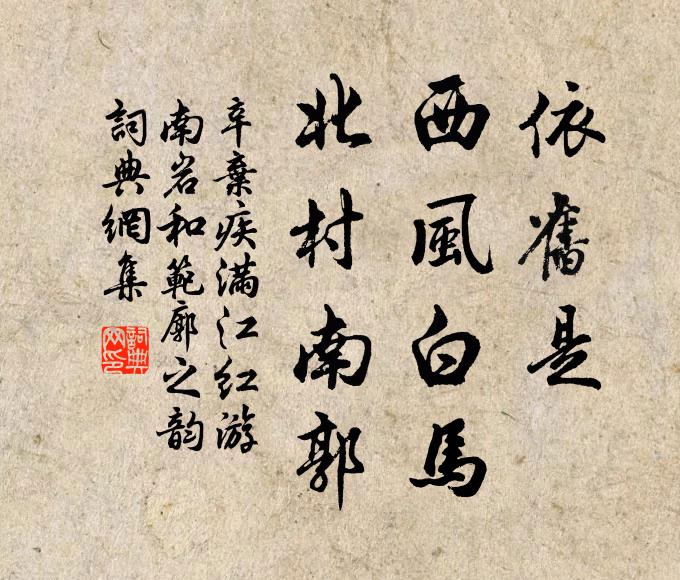 依舊是
西風白馬
北村南郭
辛棄疾滿江红游
南岩和範廓之韵
詞典網集
詞典网印